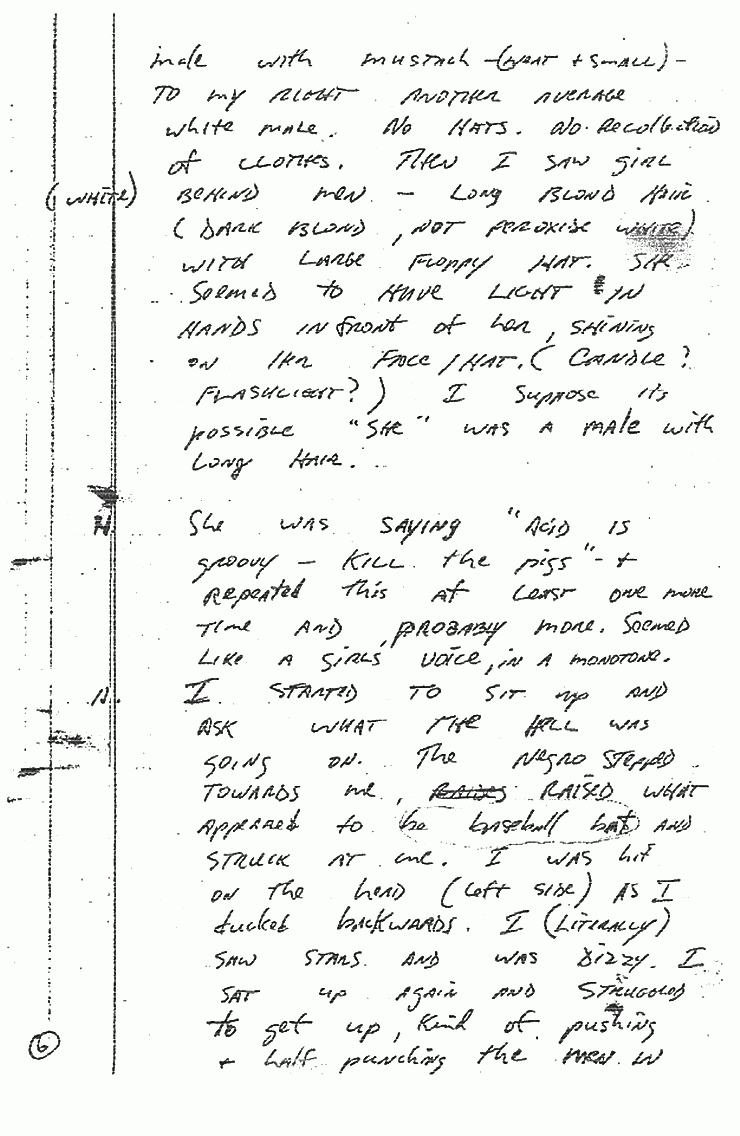 male with mustach - (neat + small) -
To my right another average
white male. No hats. No recollection
of clothes. Then I saw girl
(white) behind men - long blond hair
(dark blond, not peroxide white)
with large floppy hat. She
seemed to have light in
hands in front of her, shining
on her face/hat. (Candle?
Flashlight?) I suppose it's
possible "she" was a male with
long hair.
N. She was saying "Acid is
groovy - kill the pigs" - +
repeated this at least one more
time and, probably more. Seemed
like a girls voice, in a monotone.
N. I started to sit up and
ask what the hell was
going on. The negro stepped
towards me, raised what
appeared to be baseball bat and
struck at me. I was hit
on the head (left side) as I
ducked backwards. I (literally)
saw stars and was dizzy. I
sat up again and struggled
to get up, kind of pushing
+ half punching the men in
6